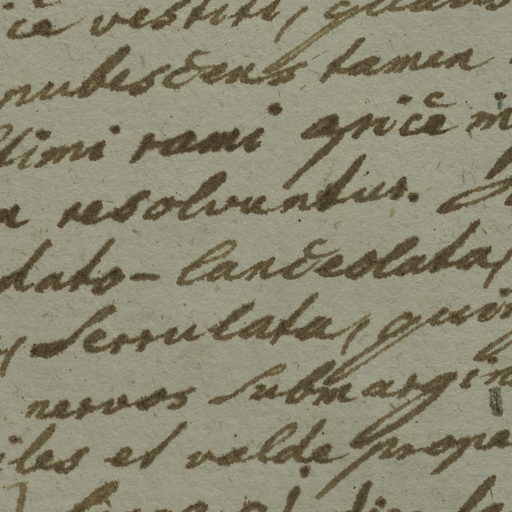 vestiti,
pubescens tamen
rami apice
resolvuntur.
dato-lanceolata,
serrulata, quin
nervos submargin
iles et valde prope